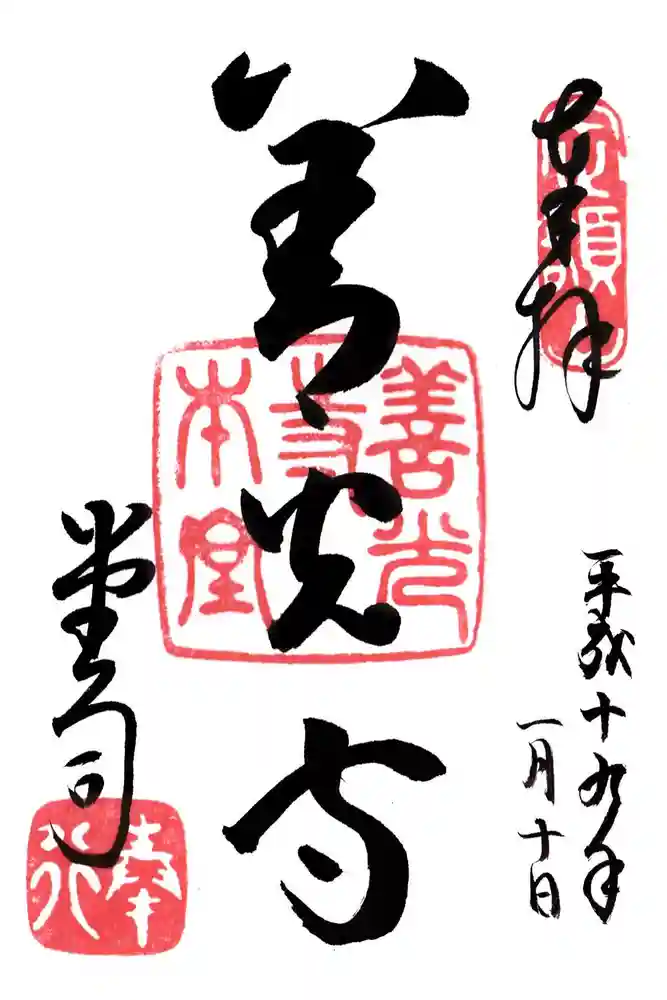 奉拝
定額山
平成十九年
一月十日
善光寺
善光
寺
本堂
堂司
奉行